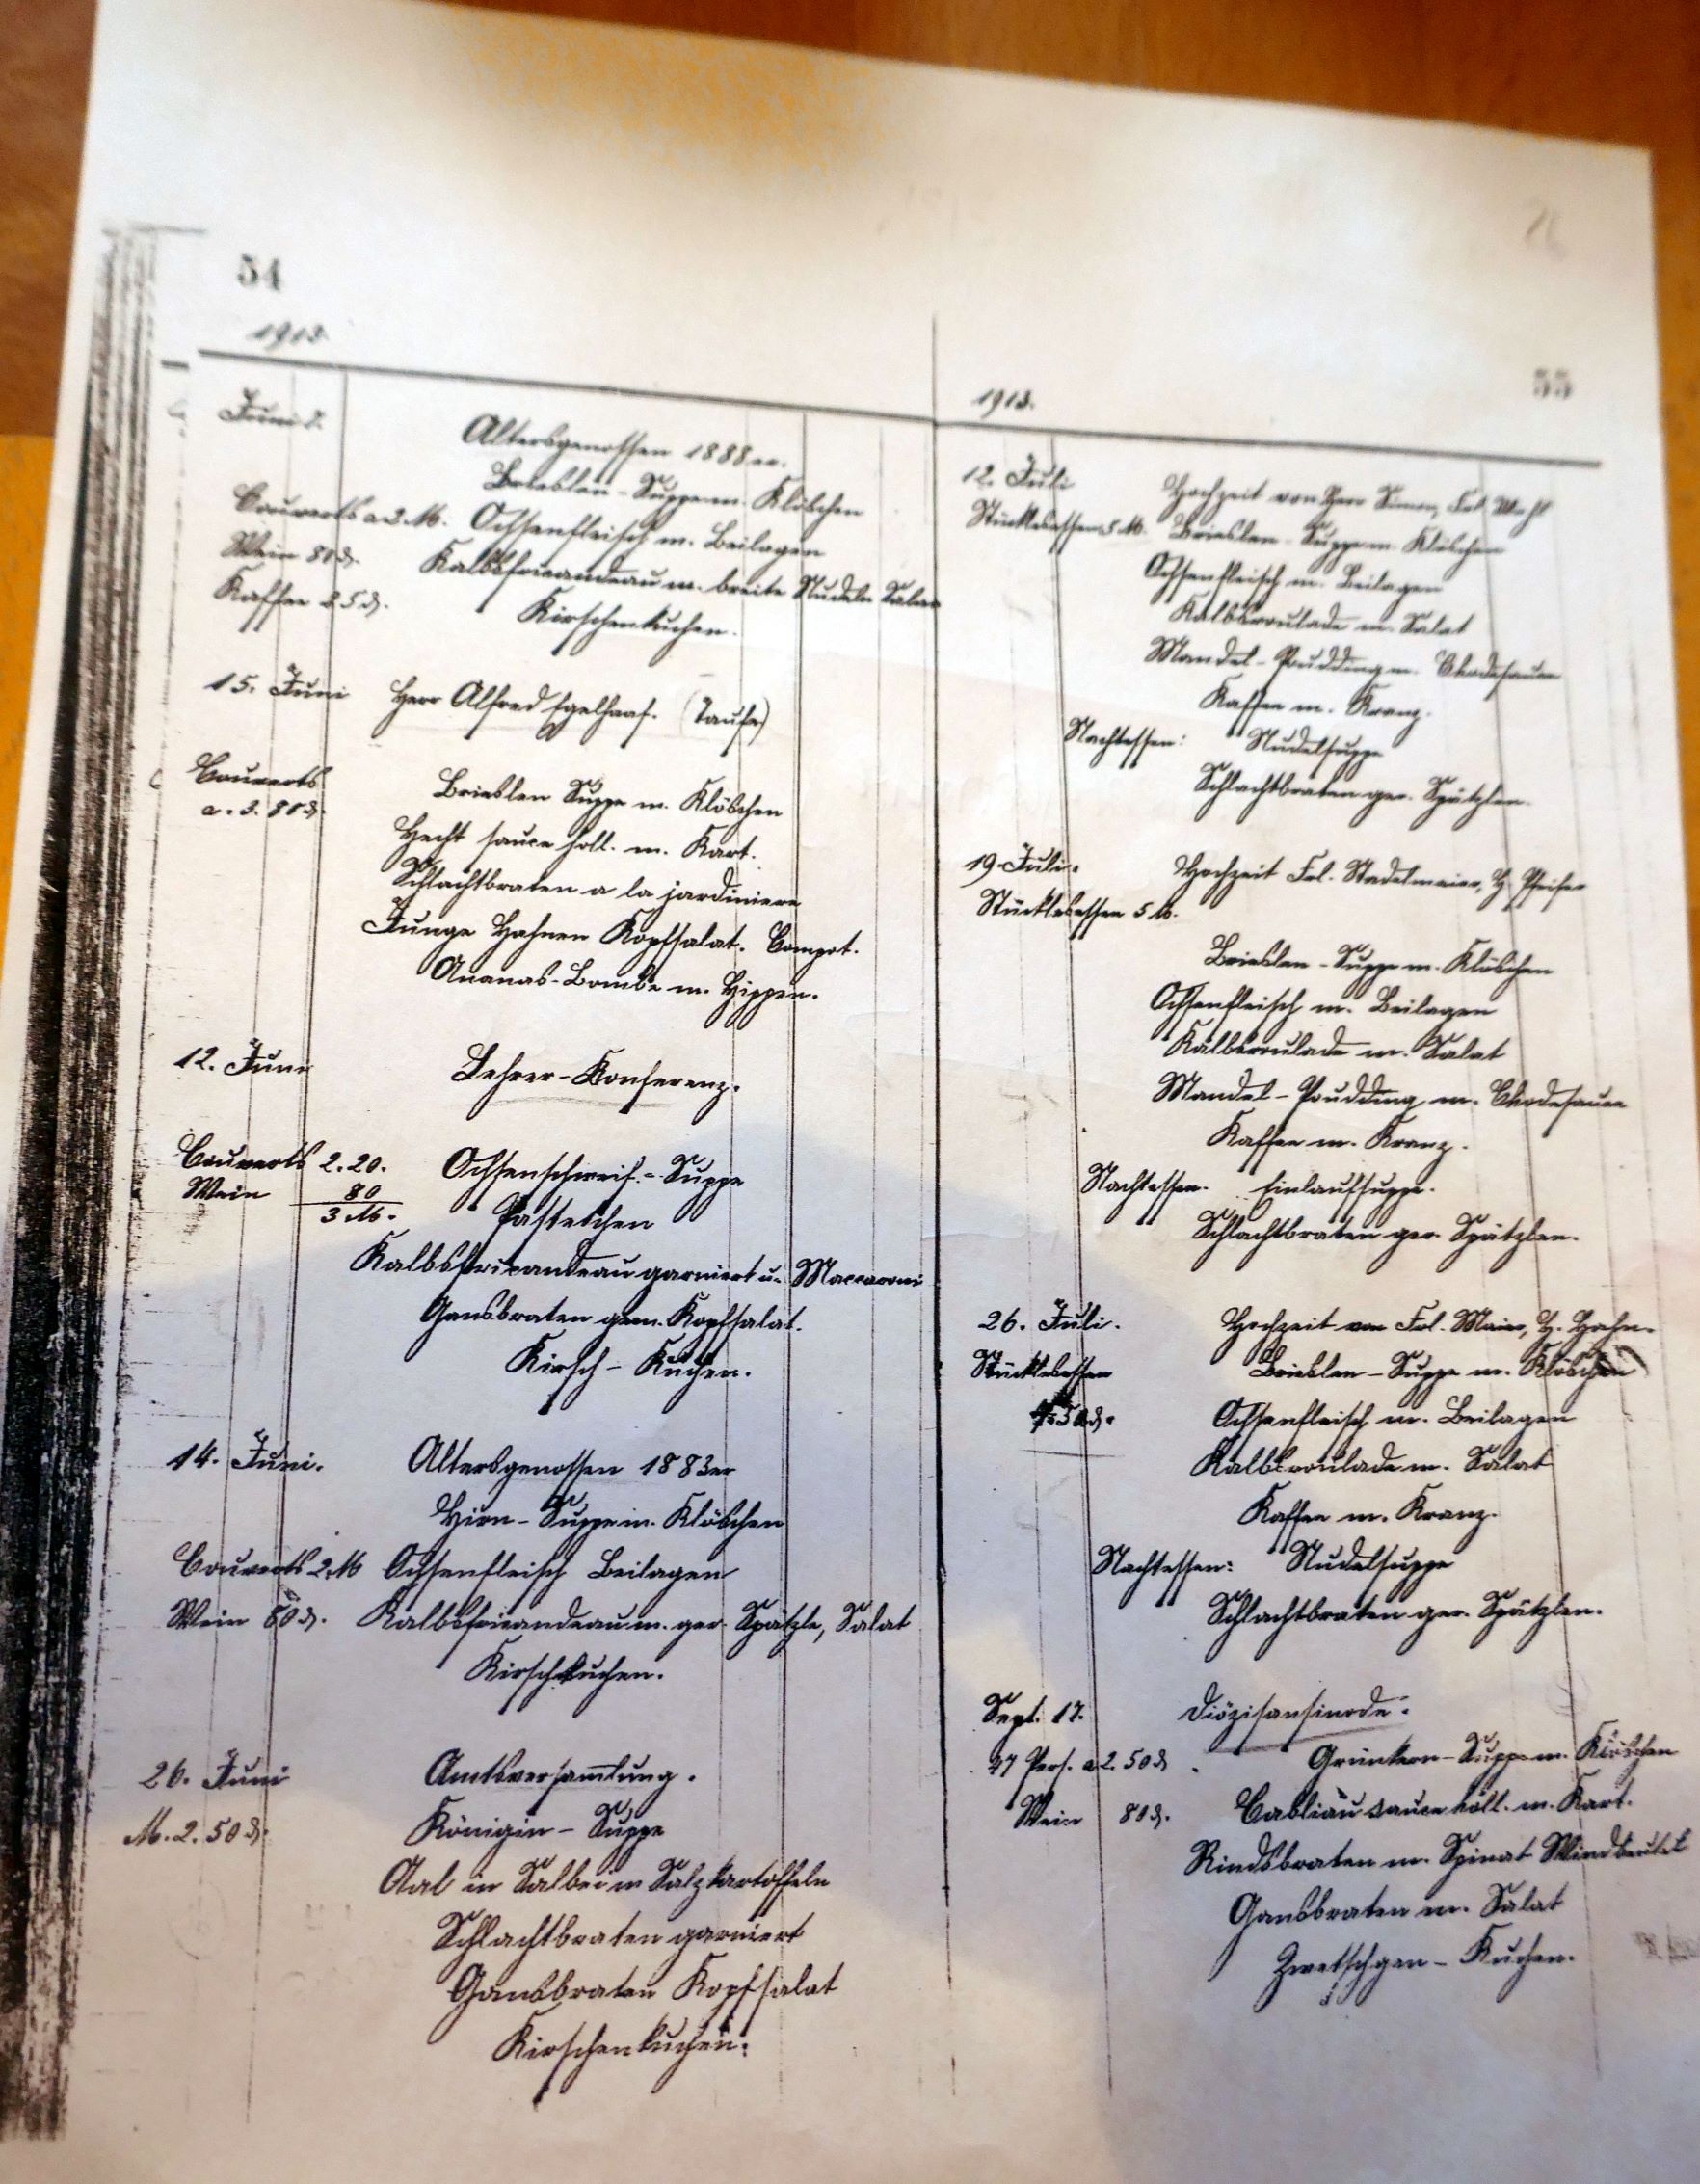 54
1913.
Juni 8.
Altersgenossen 1888er.
Brieslen-Suppe m. Klöschen
Couverts a 2 M. Ochsenfleisch m. Beilagen
Wein 80 ₰. Kalbsfricandeau m. breite Nudeln Salat
Kaffee 25 ₰. Kirschenkuchen.
15. Juni Herr Alfred Egelhaaf. (Taufe)
Couverts
a. 3. 80 ₰.
Brieslen Suppe m. Klöschen
Hecht sauce holl. m. Kart.
Schlachtbraten a la jardiniere
Junge Hahnen Kopfsalat. Compot.
Ananas-Bombe m. Hippen.
12. Juni Lehrer-Konferenz.
Couverts 2.20. Ochsenschweif-Suppe
Wein 80
3 M. Pastetchen
Kalbsfricandeau garniert u. Maccaroni
Gansbraten gem. Kopfsalat.
Kirsch-Kuchen.
14. Juni. Altersgenossen 1883er
Hirn-Suppe m. Klöschen
Couverts 2 M Ochsenfleisch Beilagen
Wein 80 ₰. Kalbsfricandeau m. ger. Spätzle, Salat
Kirschkuchen.
26. Juni Amtsversammlung.
M. 2. 50 ₰. Königin-Suppe
Aal in Salbei m Salzkartoffeln
Schlachtbraten garniert
Gansbraten Kopfsalat
Kirschenkuchen.
55
1913.
12. Juli Hochzeit von Herr Frl.
Stücklesessen 5 M. Brieslen-Suppe m Klöschen
Ochsenfleisch m. Beilagen
Kalbsroulade m. Salat
Mandel-Pudding m. Chodesauce
Kaffee m. Kranz.
Nachtessen: Nudelsuppe
Schlachtbraten ger. Spätzlen.
19. Juli. Hochzeit Frl. Stadelmaier, H. Pfeifer
Stücklesessen 5 M.
Brieslen-Suppe m. Klöschen
Ochsenfleisch m. Beilagen
Kalbsroulade m. Salat
Mandel-Pudding m. Chodesauce
Kaffee m. Kranz.
Nachtessen. Einlaufsuppe.
Schlachtbraten ger. Spätzlen.
26. Juli. Hochzeit von Frl. Maier, H. Hahn.
Stücklesessen Brieslen-Suppe m. Klöschen
4.50 ₰. Ochsenfleisch m. Beilagen
Kalbsroulade m. Salat
Kaffee m. Kranz.
Nachtessen: Nudelsuppe
Schlachtbraten ger. Spätzlen.
Sept. 17. Diözisansinode.
47 Pers. a 2. 50 ₰ Grünkern-Suppe m. Klöschen
Wein 80 ₰. Cabliau sauce holl. m. Kart.
Rindsbraten m. Spinat Windbeutel
Gansbraten m. Salat
Zwetschgen-Kuchen.